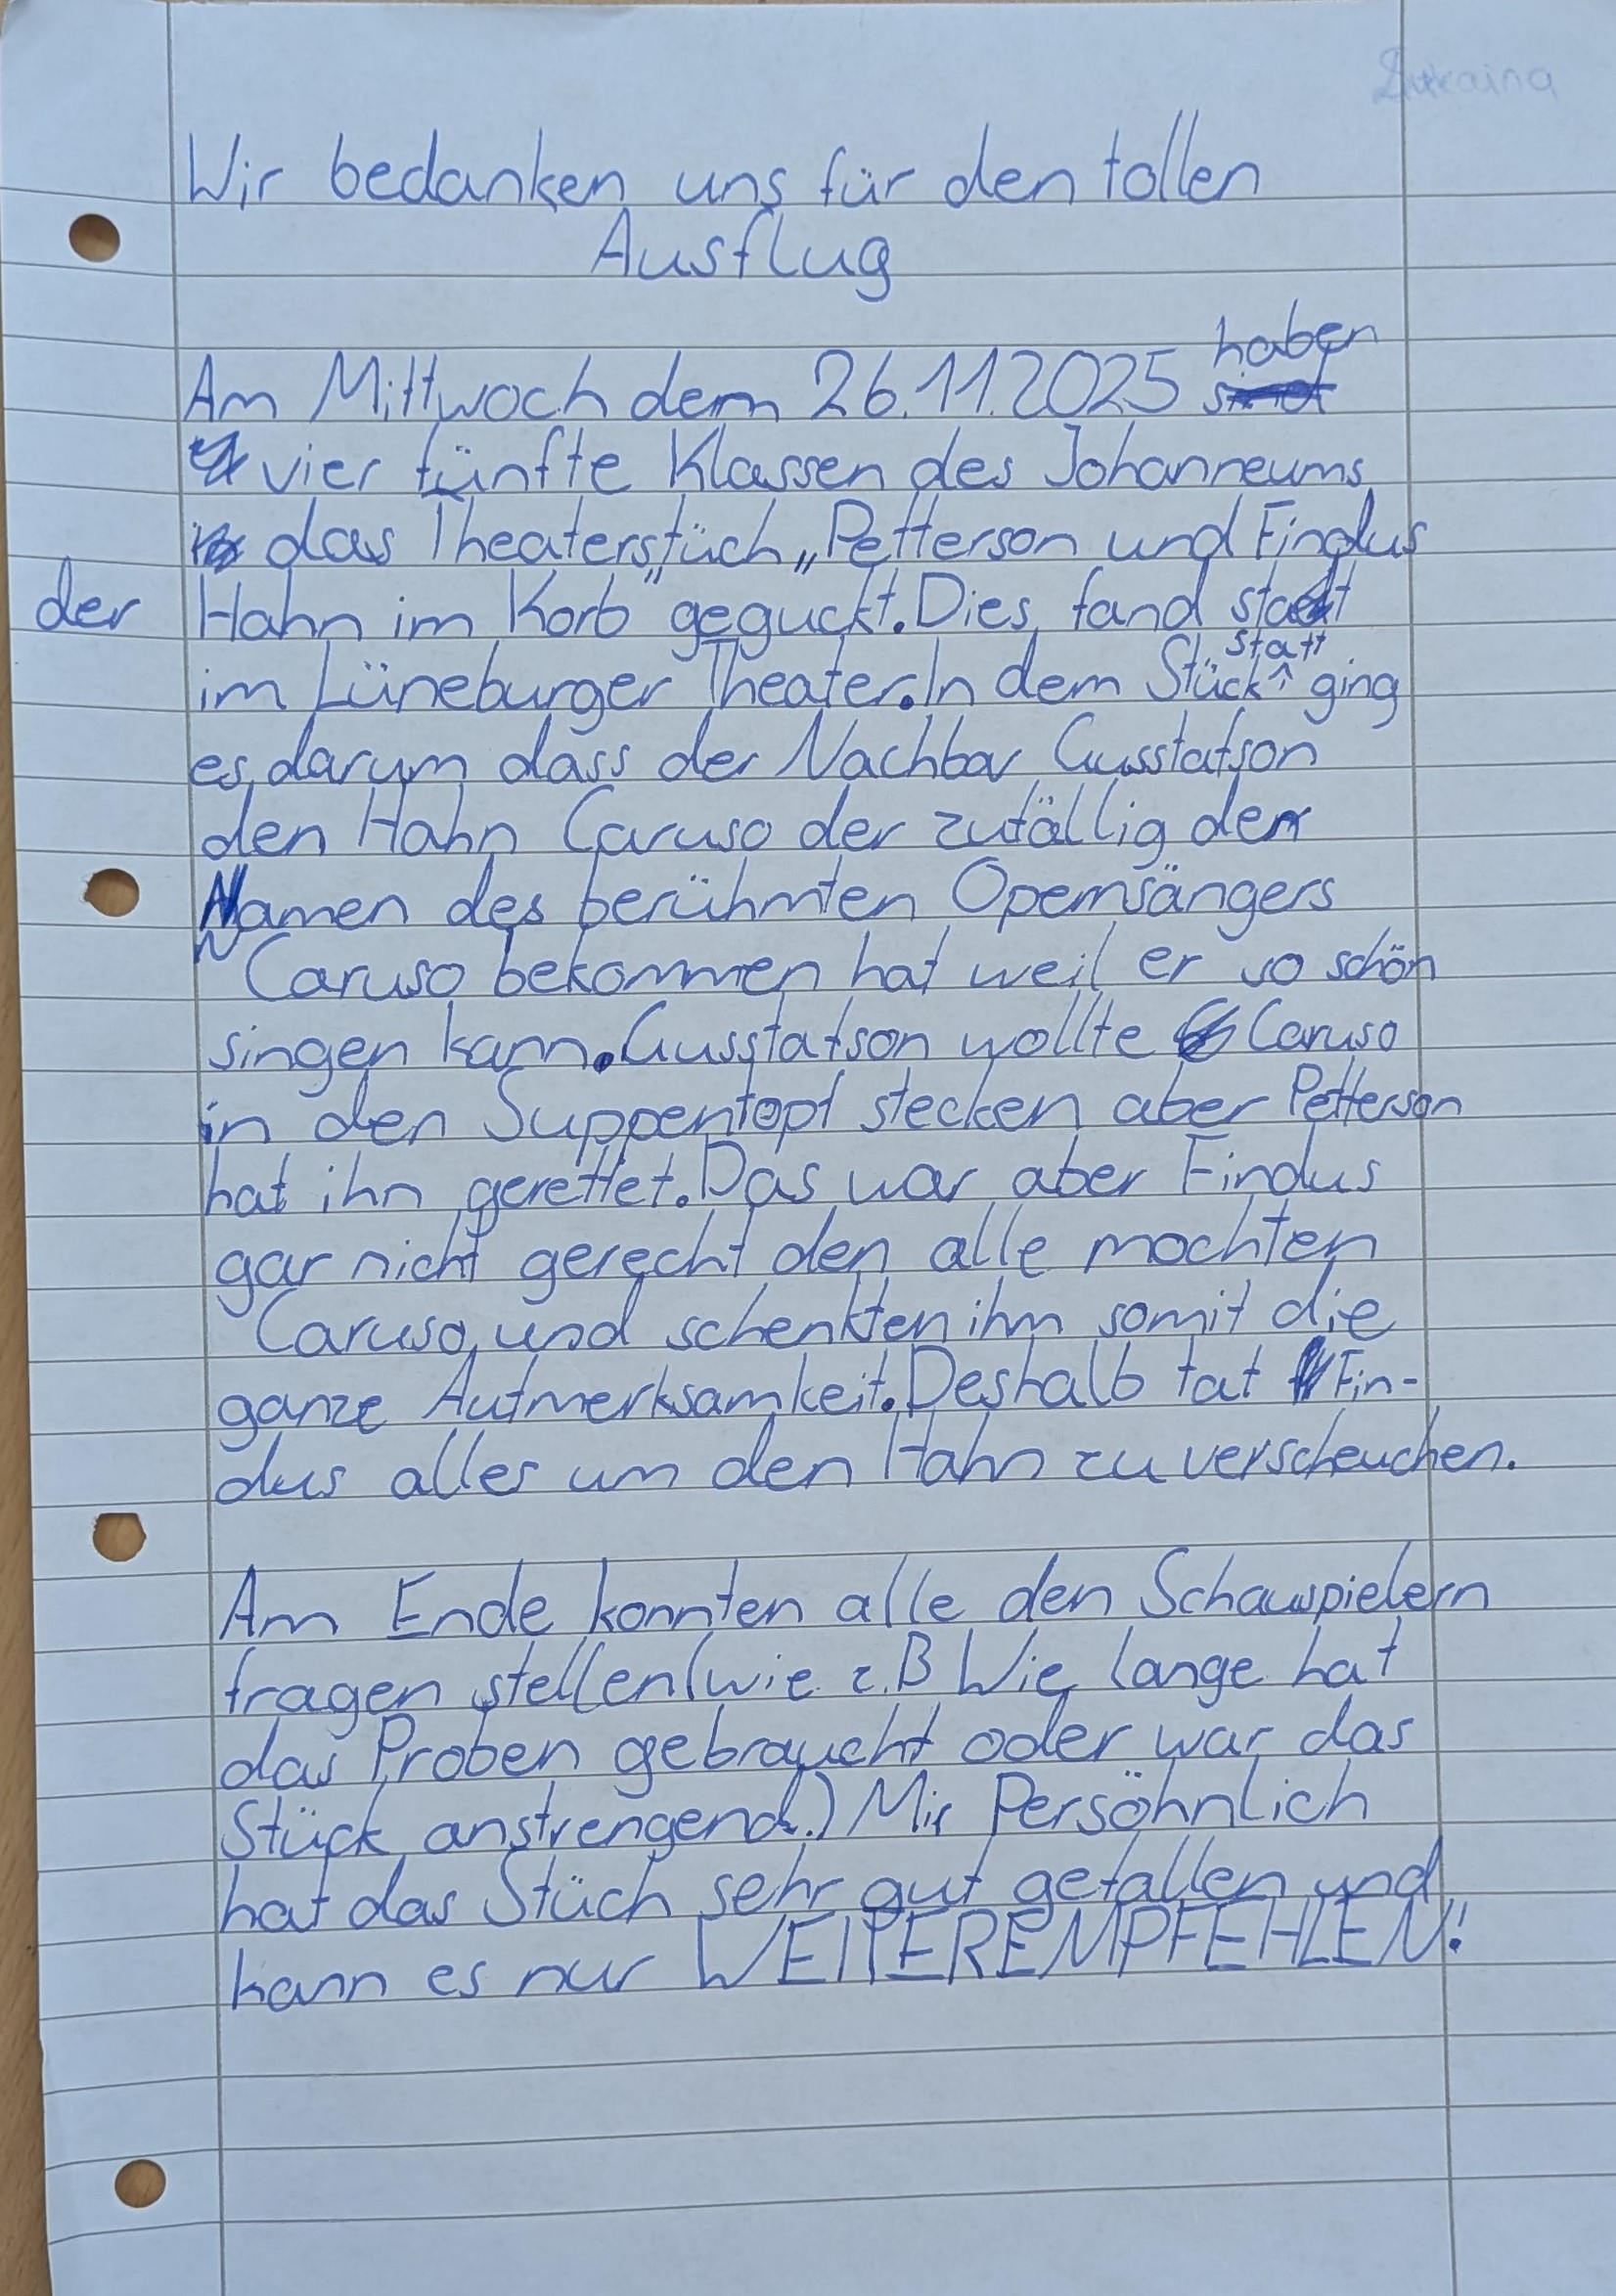 Sukaina
Wir bedanken uns für den tollen
Ausflug
Am Mittwoch dem 26.11.2025 haben
vier fünfte Klassen des Johanneums
das Theaterstüch „Petterson und Findus
der Hahn im Korb" geguckt. Dies fand statt
im Lüneburger Theater. In dem Stück statt ging
es darum dass der Nachbar Gusstafson
den Hahn Caruso der zufällig den
Namen des berühmten Opernsängers
Caruso bekommen hat weil er so schön
singen kann. Gusstafson wollte Caruso
in den Suppentopf stecken aber Petterson
hat ihn gerettet. Das war aber Findus
gar nicht gerecht den alle mochten
Caruso und schenkten ihm somit die
ganze Aufmerksamkeit. Deshalb tat Fin-
dus alles um den Hahn zu verscheuchen.
Am Ende konnten alle den Schauspielern
fragen stellen (wie z.B Wie lange hat
das Proben gebraucht oder war das
Stück anstrengend.) Mir Persöhnlich
hat das Stüch sehr gut gefallen und
kann es nur WEITEREMPFEHLEN!